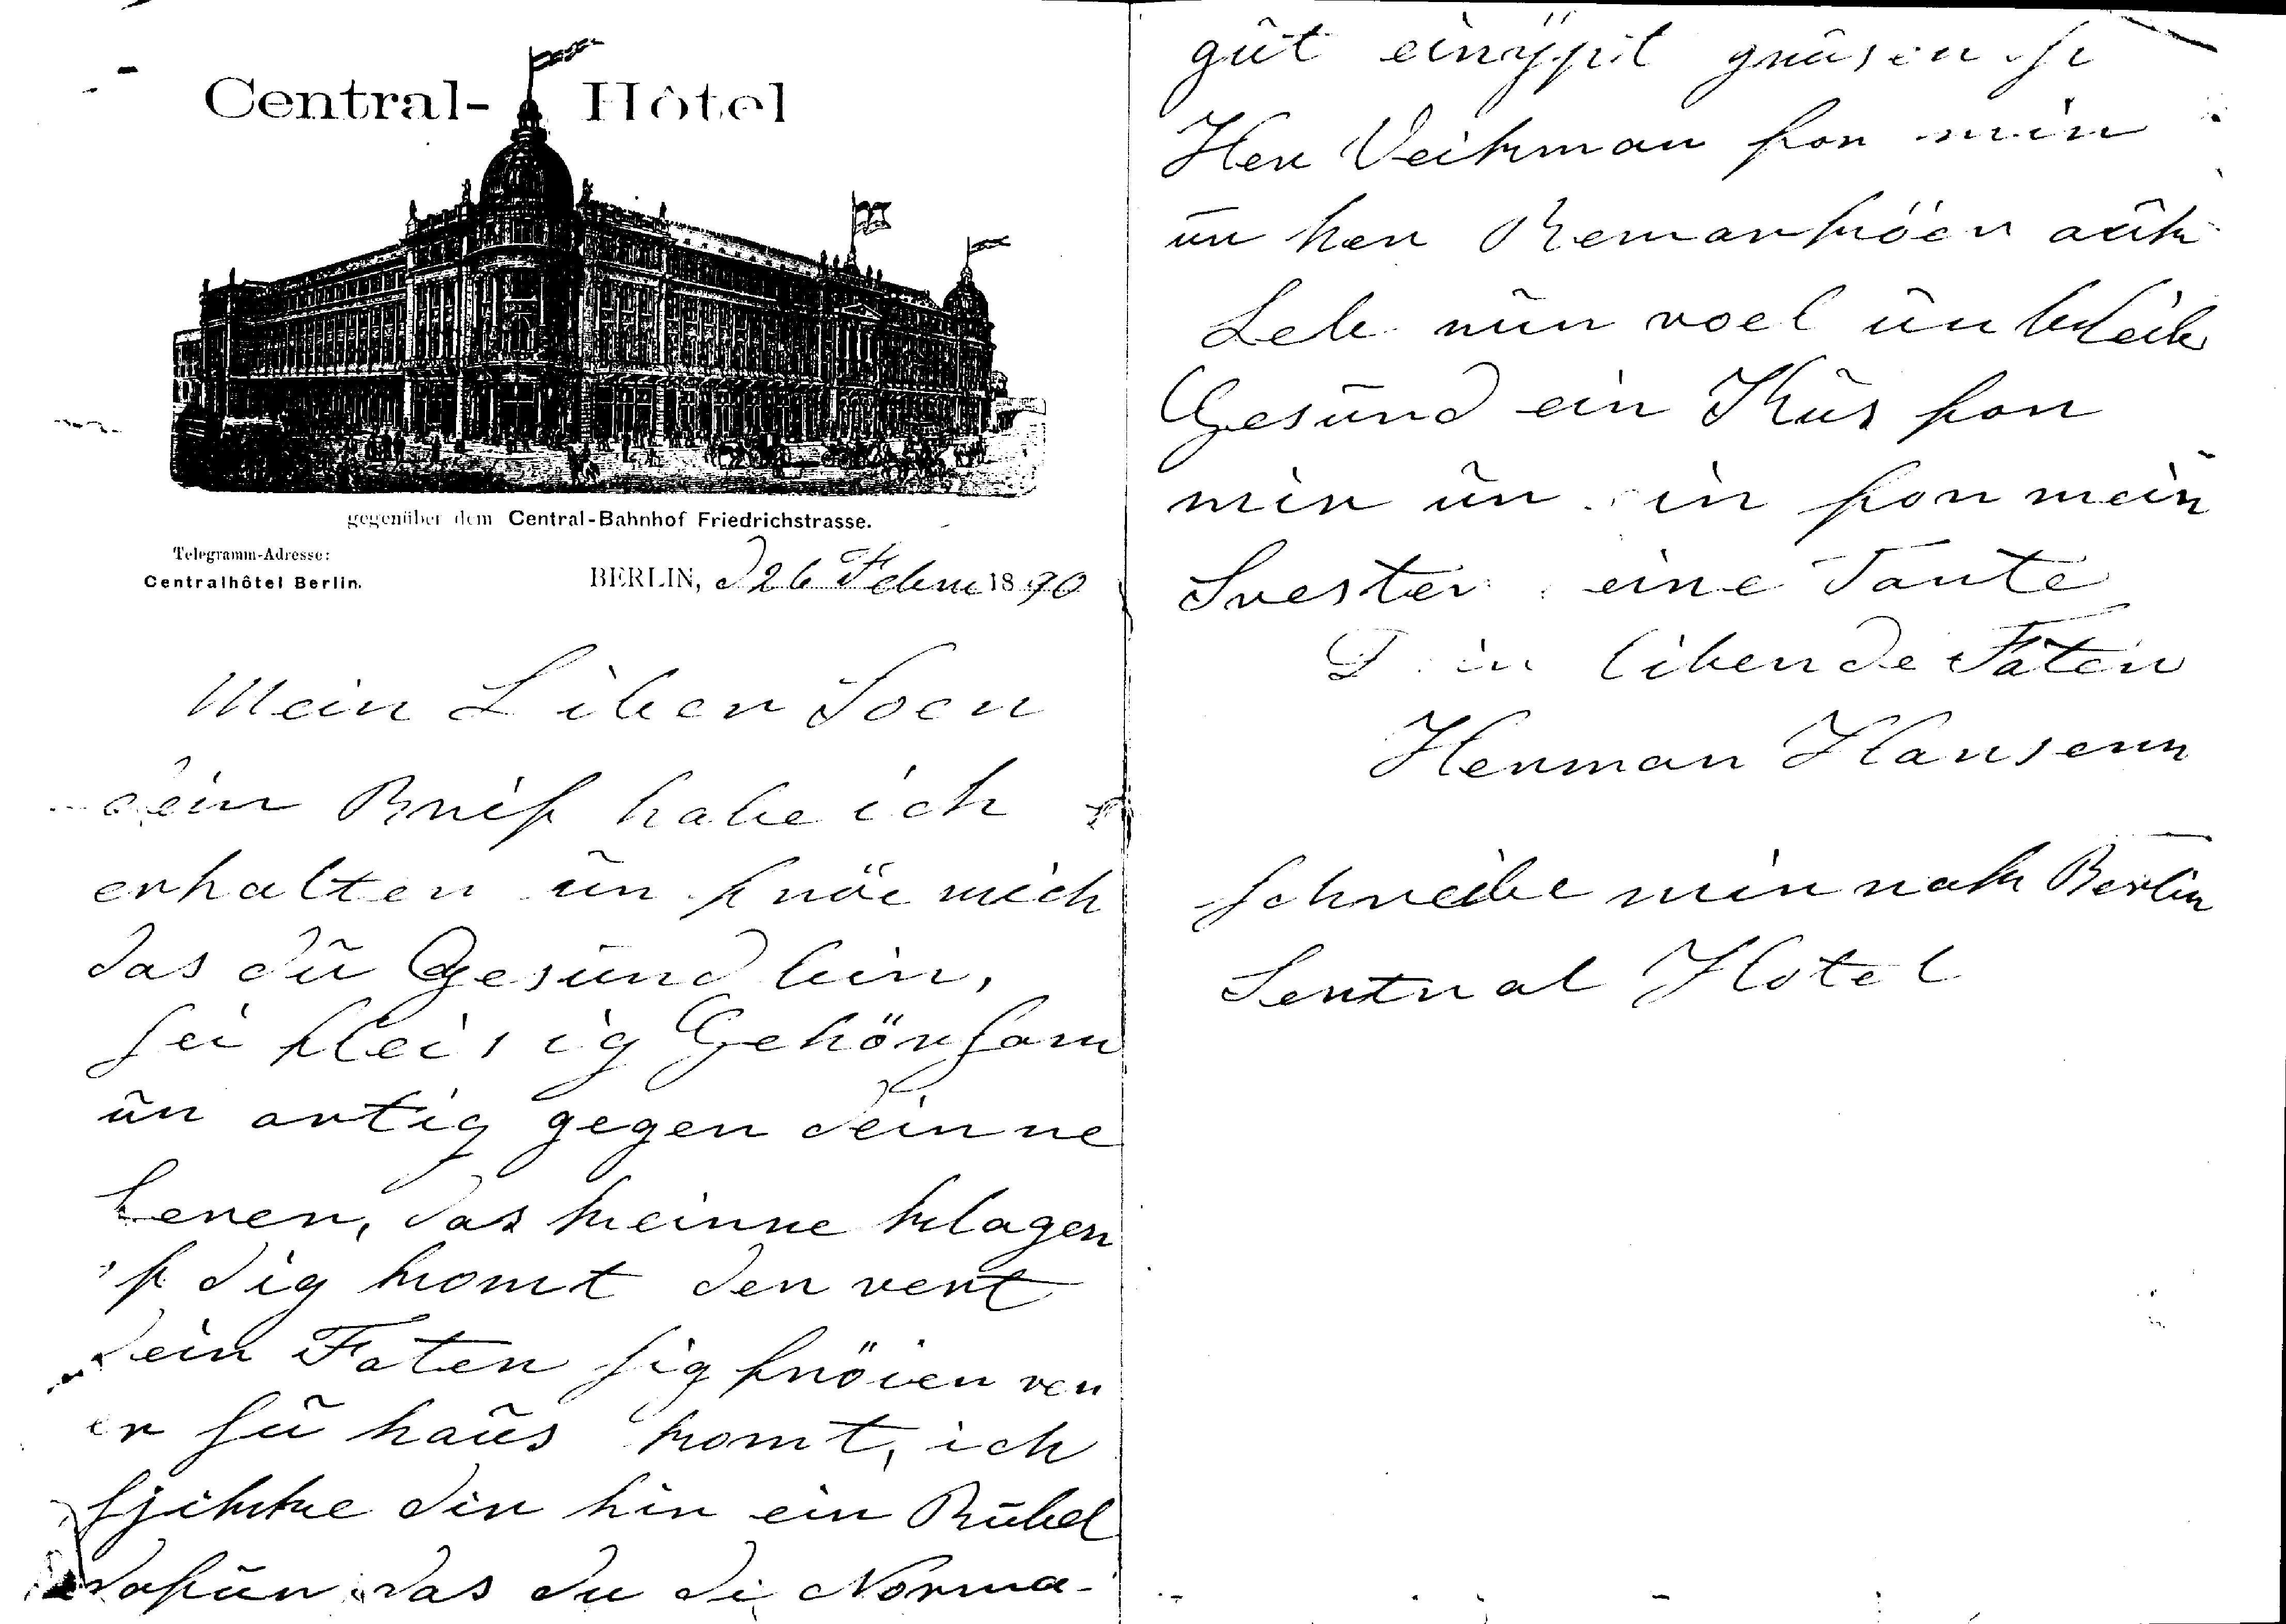 Central-Hôtel
gegenüber dem Central-Bahnhof Friedrichstrasse.
Telegramm-Adresse:
Centralhôtel Berlin.
BERLIN, d 26 Febru 1890
Mein Liber Soen
dein Brif habe ich
erhalten ūn fröe mich
das dū Gesūnd bin,
sei fleisig Gehörsam
ūn artig gegen deinne
Lerer, das keinne klagen
dig komt den vert
dein Fater sig fröien ven
er sū haūs komt, ich
sjikke dir hir ein Rūbel
dafūr das du di Norma-
gūt
Her Veikman fon mir
ūn her Remarköer aūk
Leb nūn voel ūn bleib
Gesūnd ein Kūs fon
mir ūn ein fon mein
Svester eine Tante
libende Fater
Herman Hansenn
schreibe mir nak Berlin
Sentral Hotel